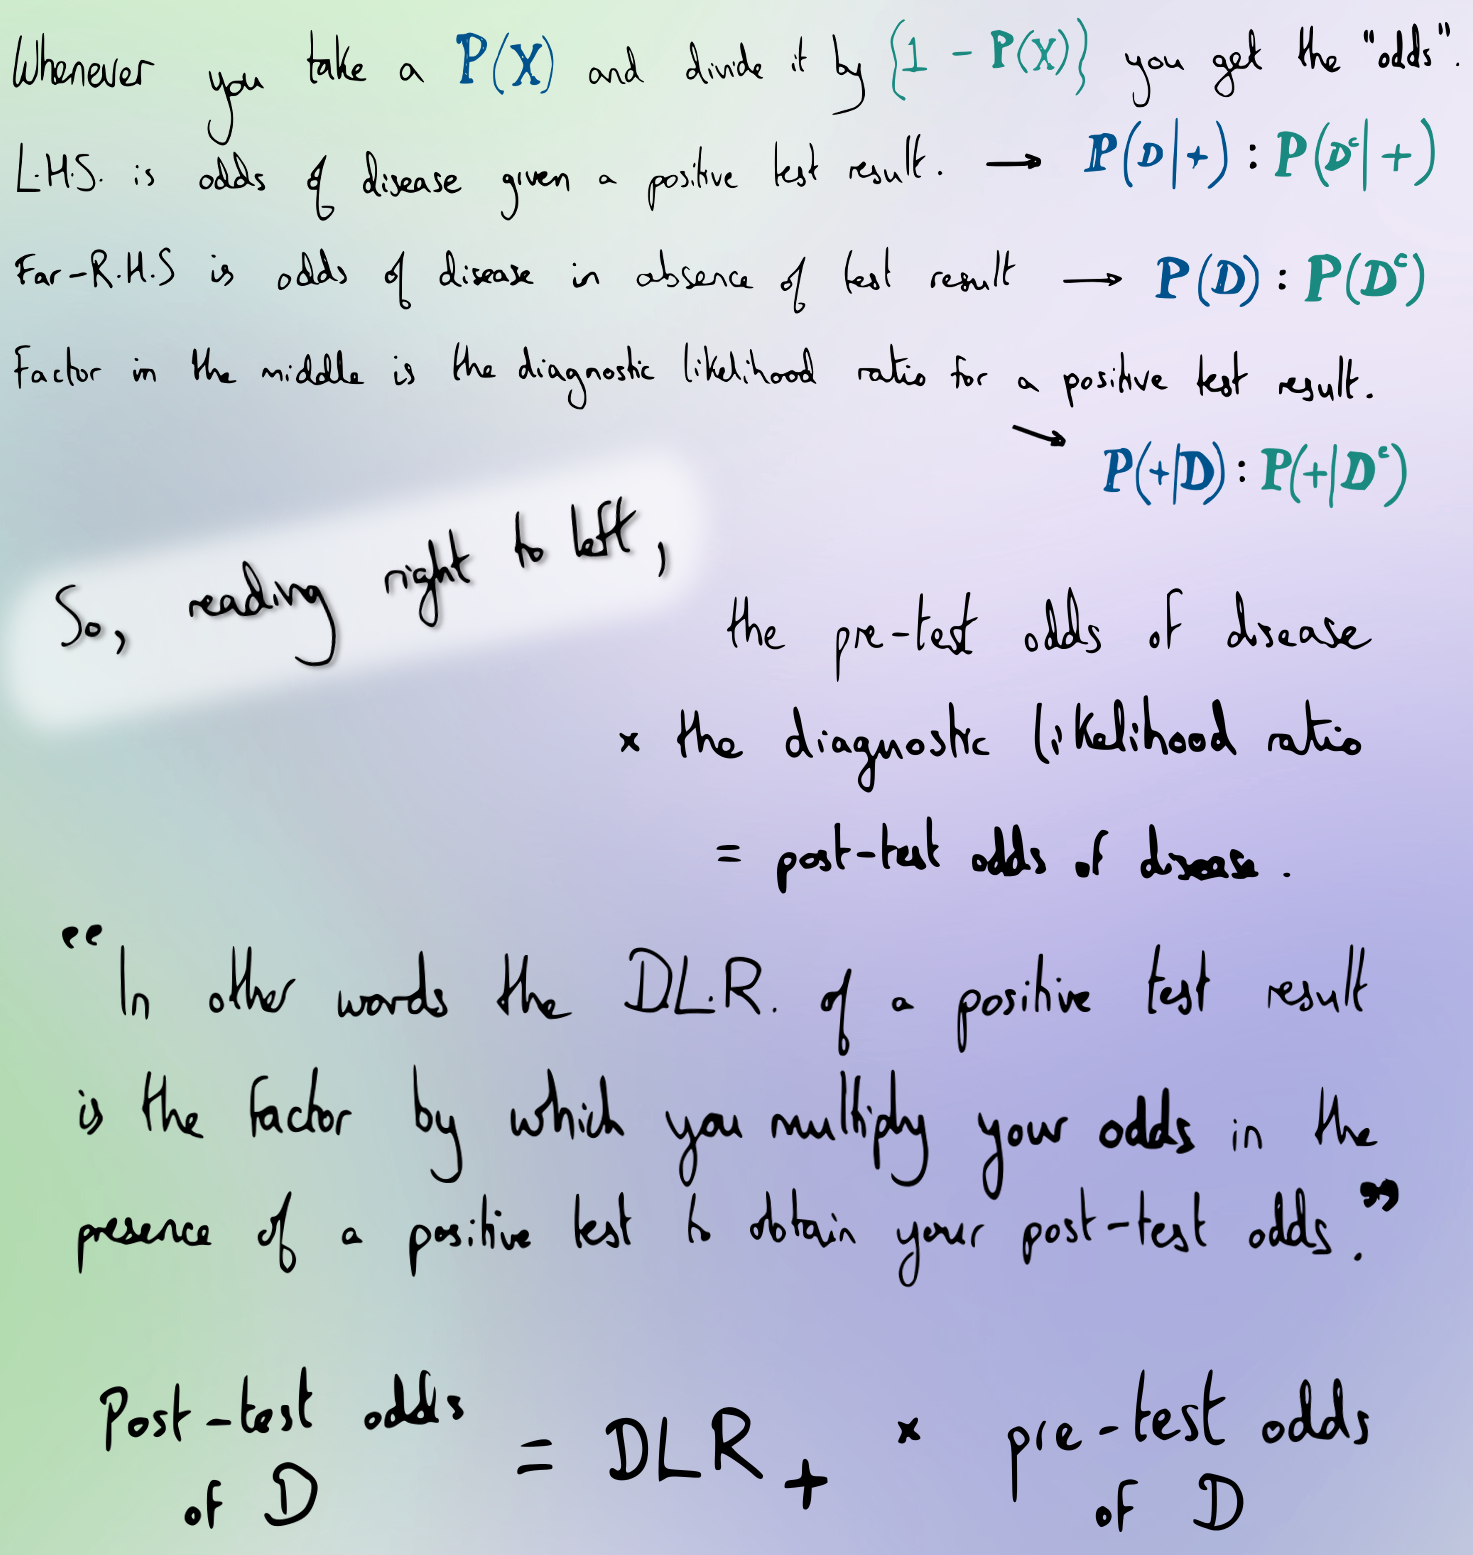 Whenever you take a P(X) and divide it by {1 - P(X)} you get the "odds".
L.H.S. is odds of disease given a positive test result. → P(D|+) : P(Dᶜ|+)
Far-R.H.S is odds of disease in absence of test result → P(D) : P(Dᶜ)
Factor in the middle is the diagnostic likelihood ratio for a positive test result.
→ P(+|D) : P(+|Dᶜ)
So, reading right to left,
the pre-test odds of disease
× the diagnostic likelihood ratio
= post-test odds of disease.
“In other words the D.L.R. of a positive test result
is the factor by which you multiply your odds in the
presence of a positive test to obtain your post-test odds.”
Post-test odds of D = DLR₊ × pre-test odds of D